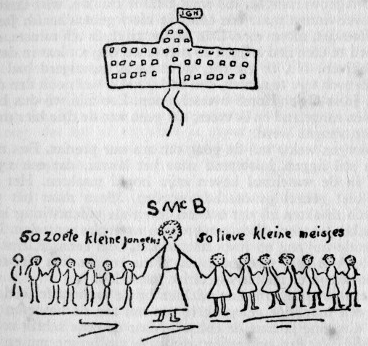 IGH
SMcB
50 zoete kleine jongens 50 lieve kleine meisjes